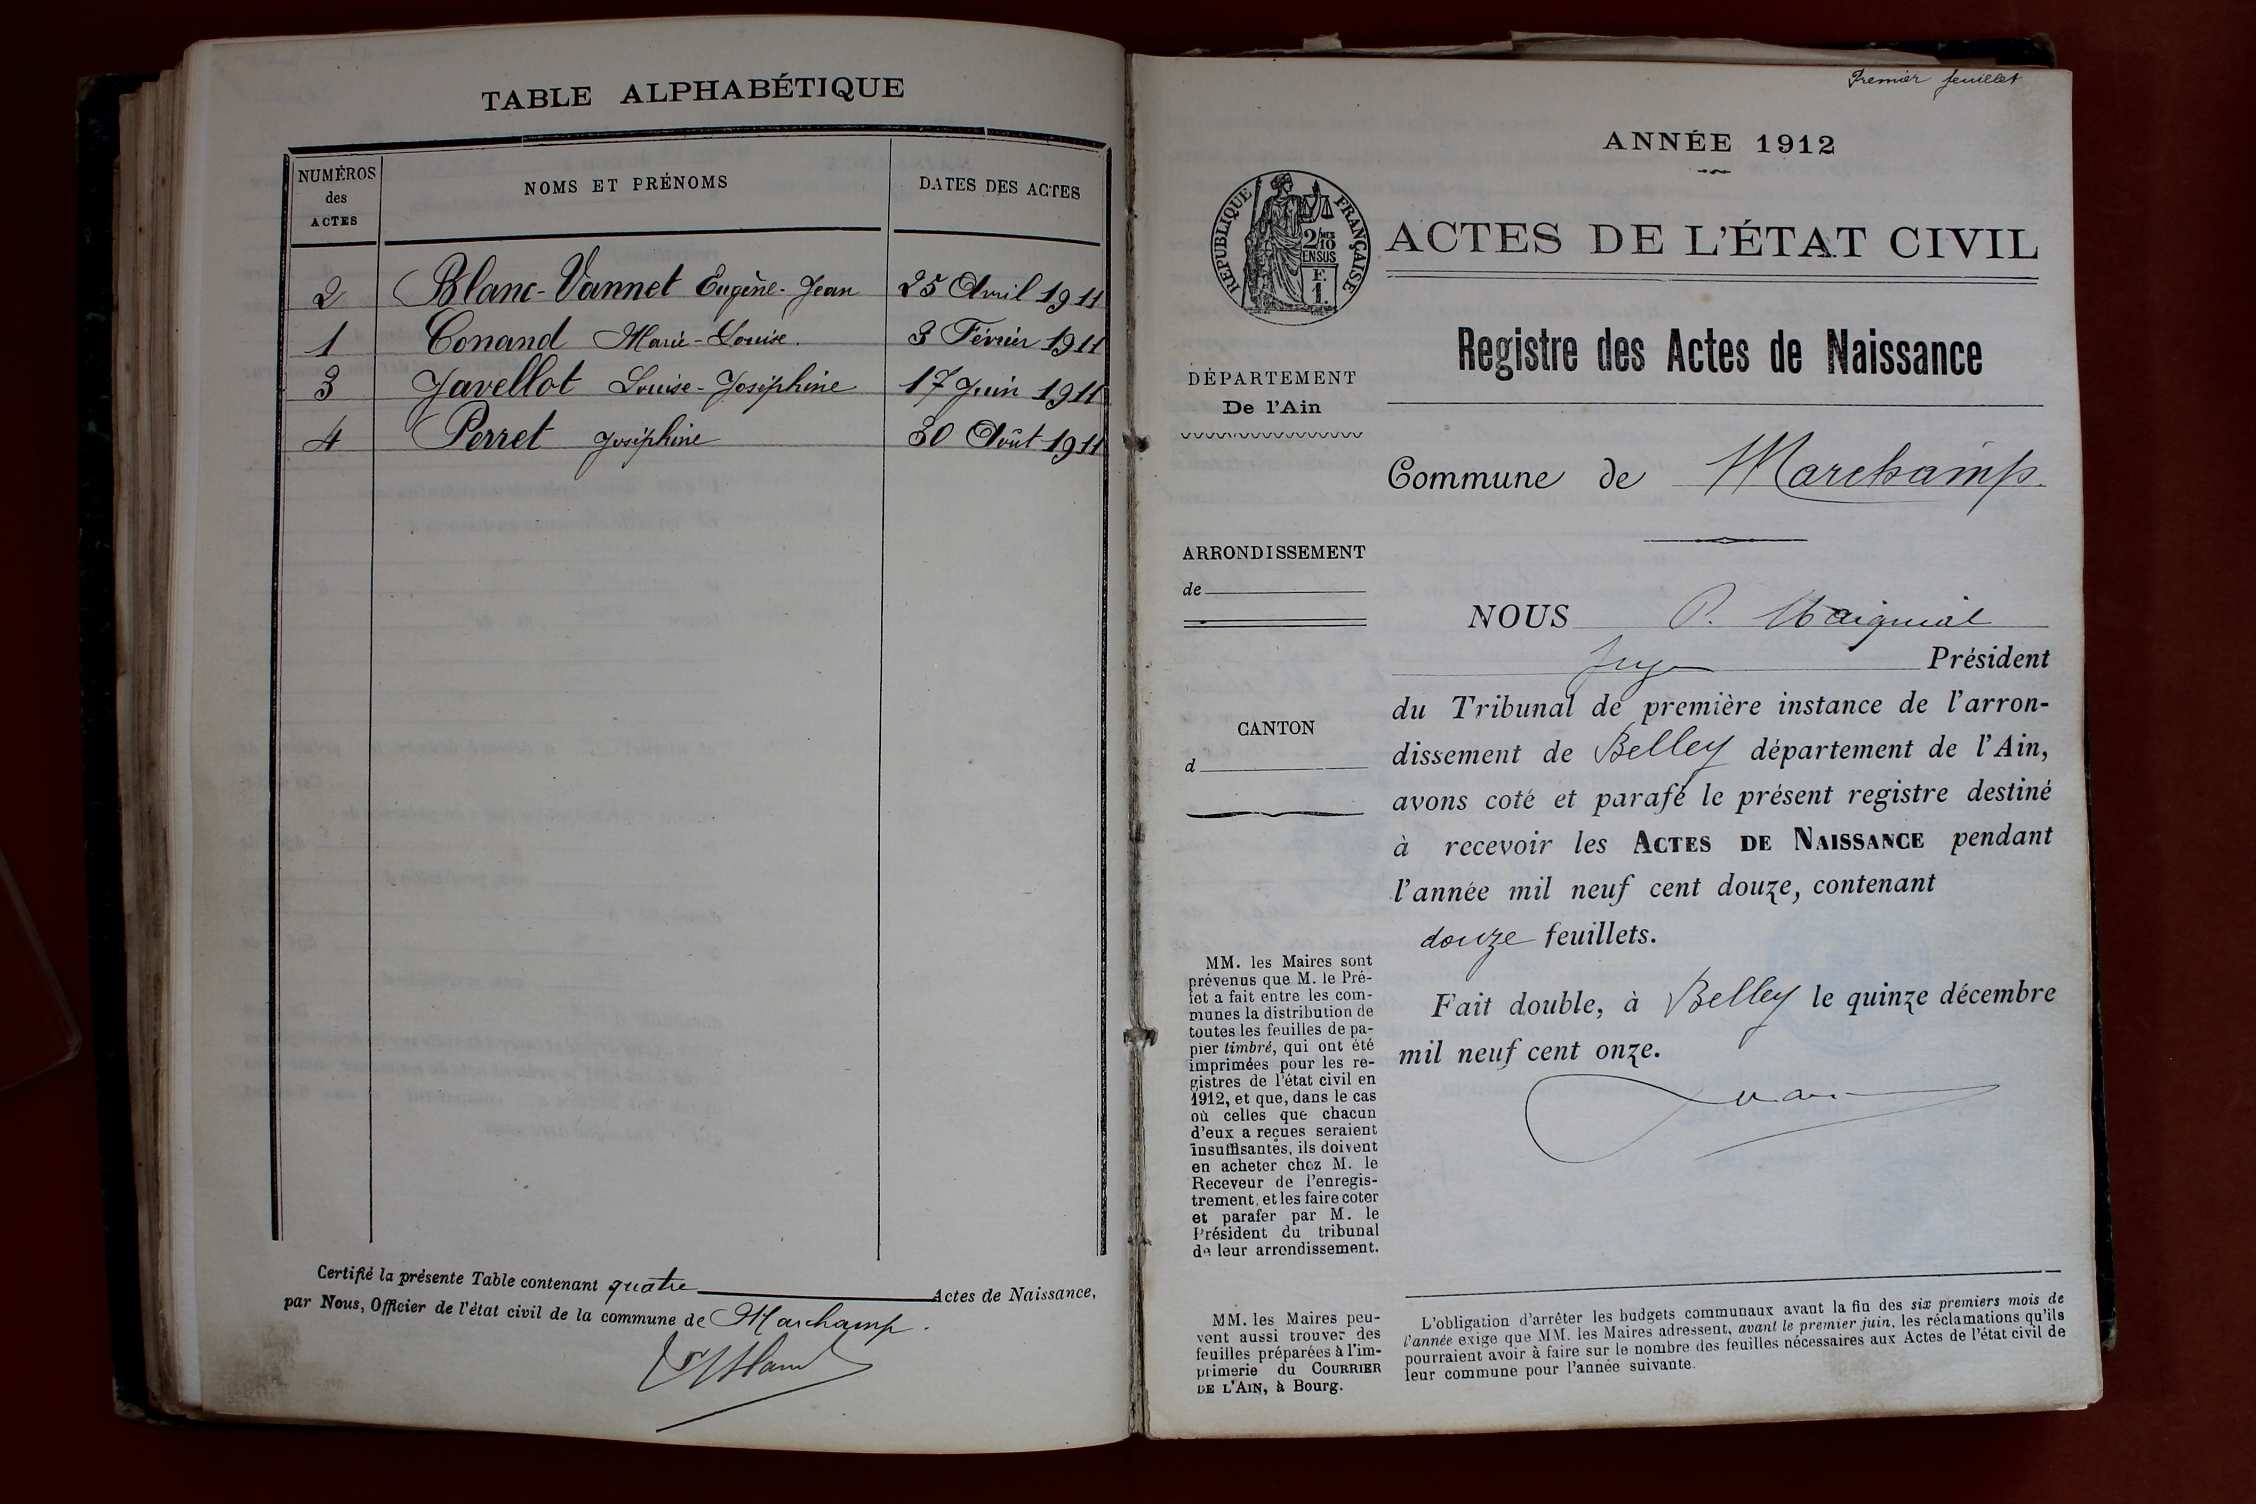 TABLE ALPHABÉTIQUE
NUMÉROS des ACTES NOMS ET PRÉNOMS DATES DES ACTES
2 Blanc-Vannet Eugène-Jean 25 Avril 1911
1 Conand Marie-Louise. 3 Février 1911
3 Javellot Louise-Joséphine 17 Juin 1911
4 Perret Joséphine 30 Août 1911
Certifié la présente Table contenant quatre Actes de Naissance,
par Nous, Officier de l'état civil de la commune de Marchamp.
Premier feuillet
ANNÉE 1912
RÉPUBLIQUE FRANÇAISE
2/10 EN SUS
F. 1.
ACTES DE L'ÉTAT CIVIL
Registre des Actes de Naissance
DÉPARTEMENT
De l'Ain
Commune de Marchamp.
ARRONDISSEMENT
de
CANTON
d
NOUS P.
Juge Président
du Tribunal de première instance de l'arron-
dissement de Belley département de l'Ain,
avons coté et parafé le présent registre destiné
à recevoir les ACTES DE NAISSANCE pendant
l'année mil neuf cent douze, contenant
douze feuillets.
Fait double, à Belley le quinze décembre
mil neuf cent onze.
MM. les Maires sont
prévenus que M. le Pré-
fet a fait entre les com-
munes la distribution de
toutes les feuilles de pa-
pier timbré, qui ont été
imprimées pour les re-
gistres de l'état civil en
1912, et que, dans le cas
où celles que chacun
d'eux a reçues seraient
insuffisantes, ils doivent
en acheter chez M. le
Receveur de l'enregis-
trement, et les faire coter
et parafer par M. le
Président du tribunal
de leur arrondissement.
MM. les Maires peu-
vent aussi trouver des
feuilles préparées à l'im-
primerie du COURRIER
DE L'AIN, à Bourg.
L'obligation d'arrêter les budgets communaux avant la fin des six premiers mois de
l'année exige que MM. les Maires adressent, avant le premier juin, les réclamations qu'ils
pourraient avoir à faire sur le nombre des feuilles nécessaires aux Actes de l'état civil de
leur commune pour l'année suivante.